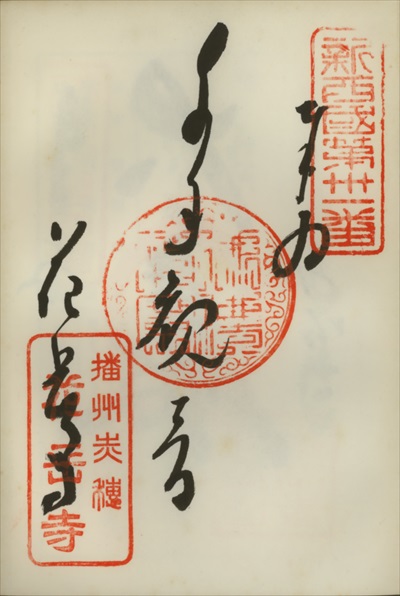 新西國第卅一番
奉拝
千手観音
花岳寺
播州赤穗
華岳寺